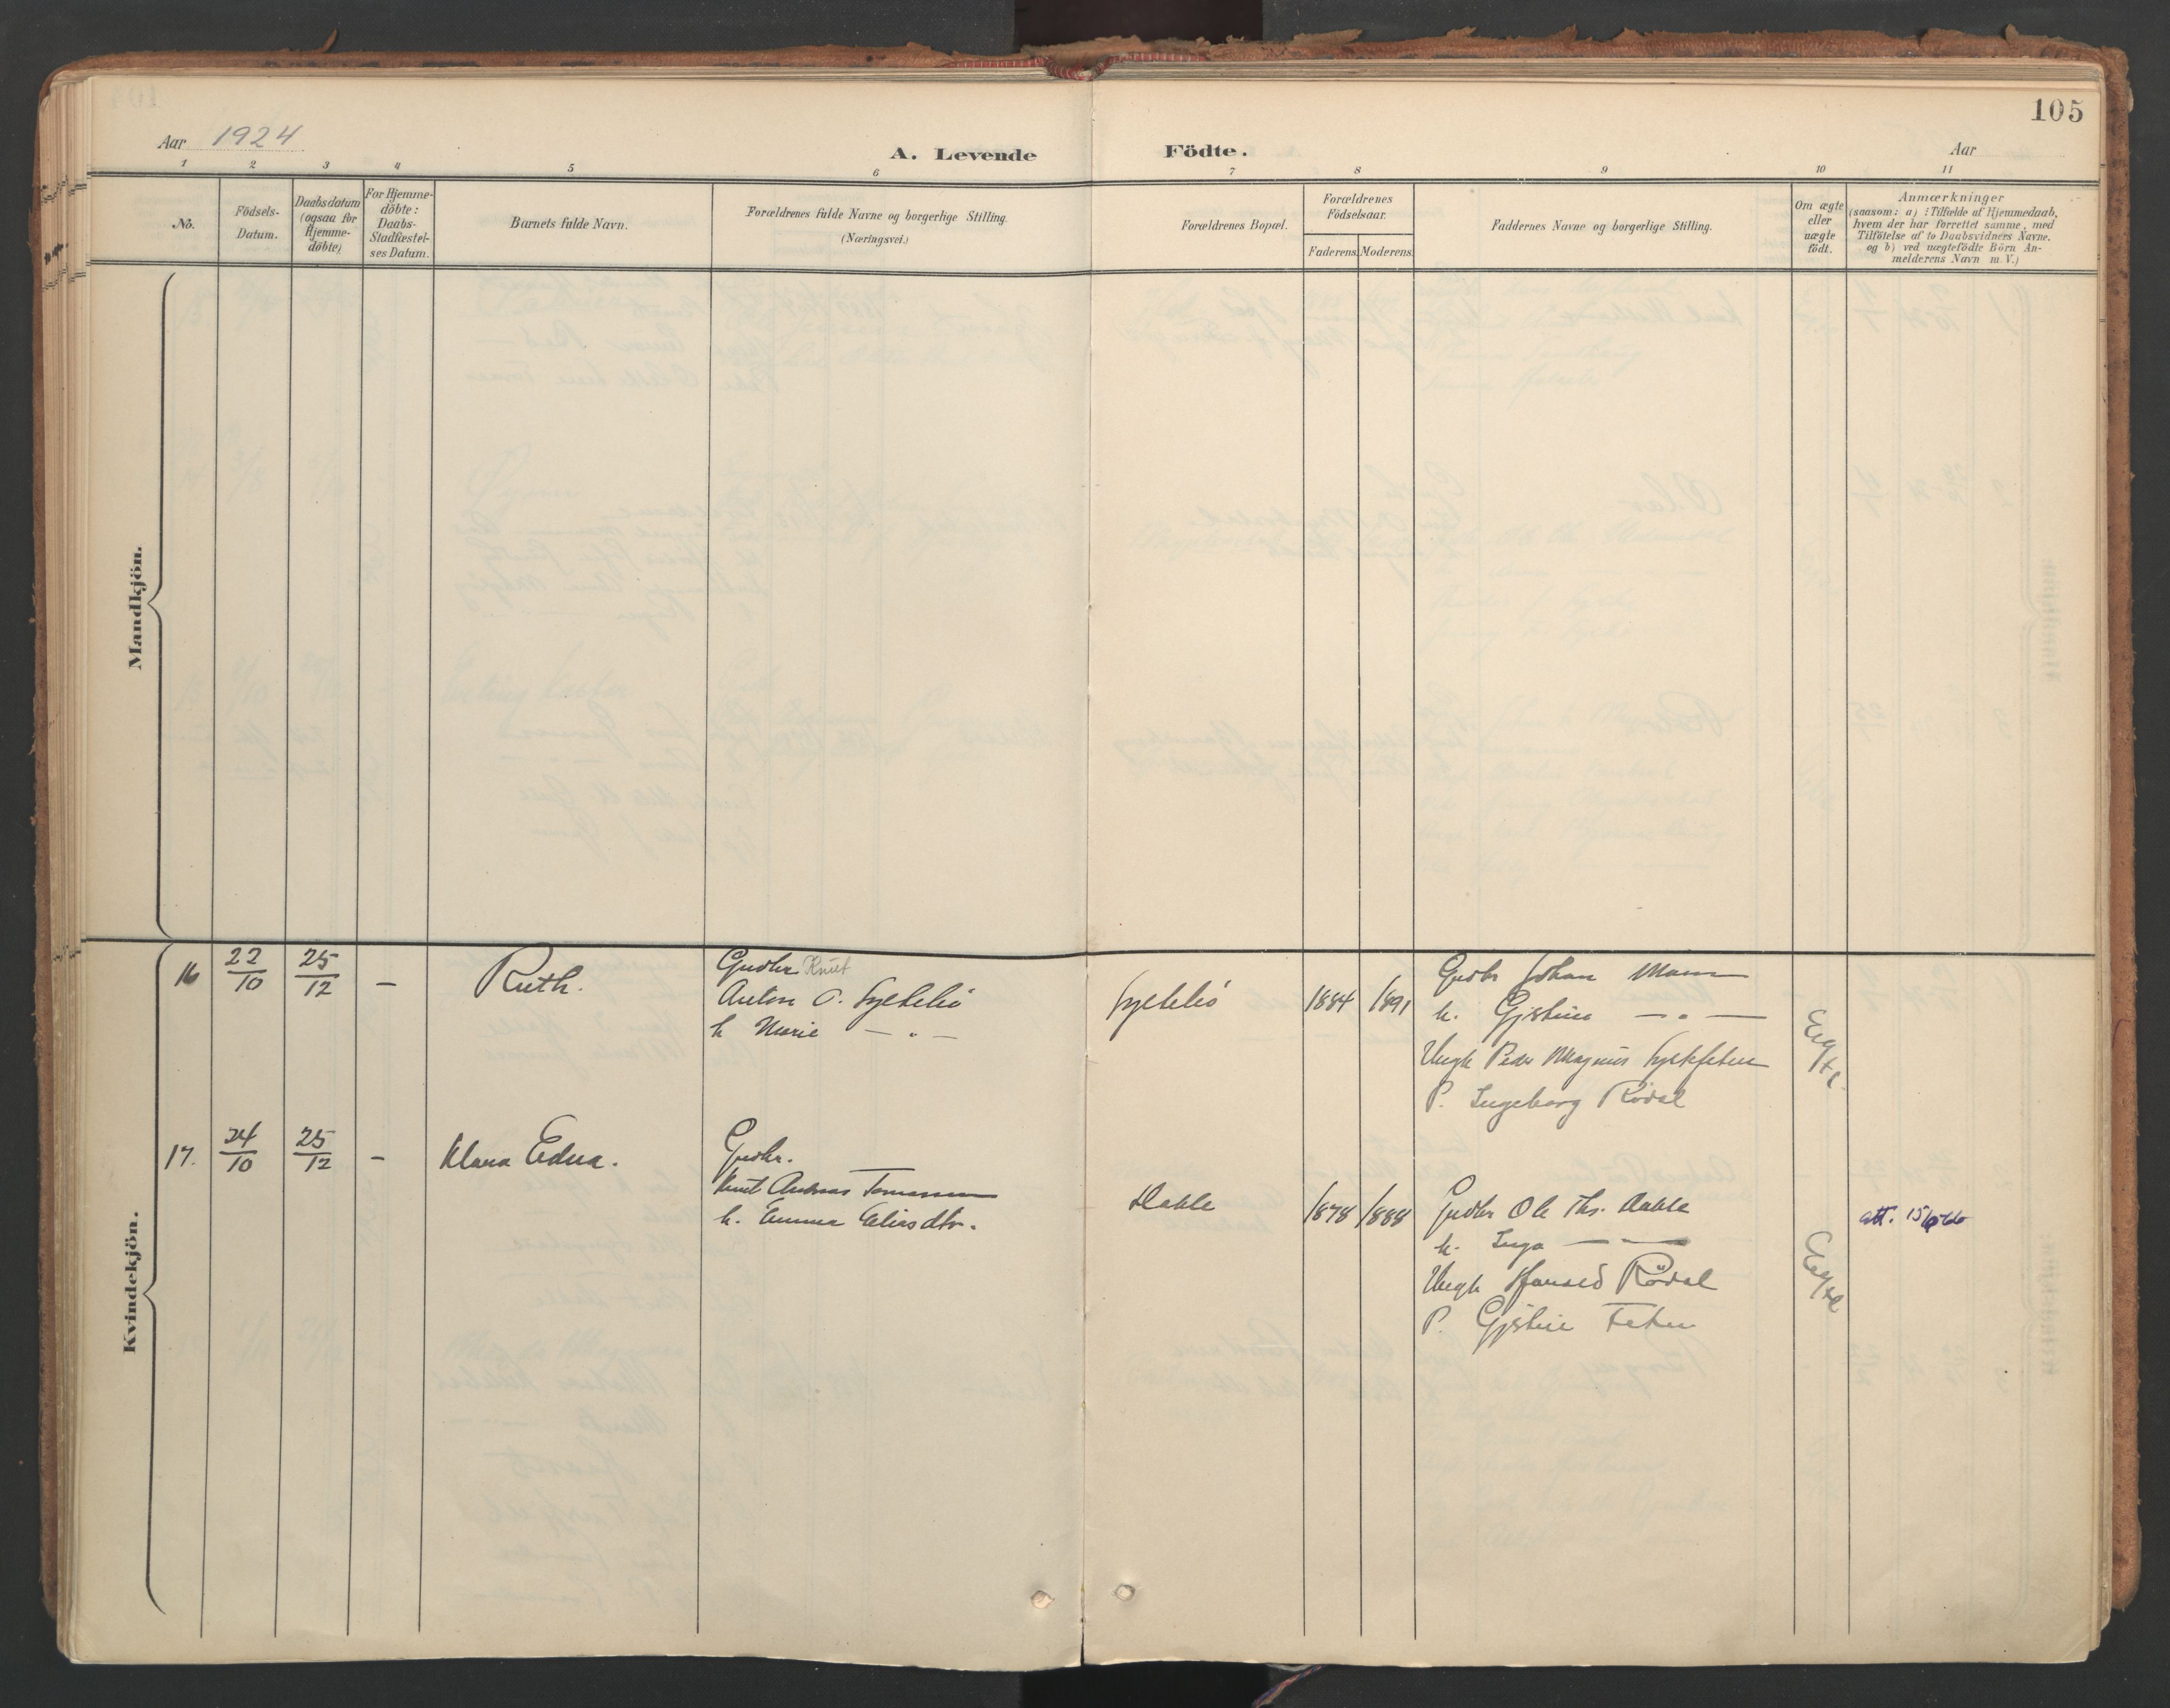 105
Aar 1924
A. Levende Födte.
Aar
1 2 3 4 5 6 7 8 9 10 11
No.
Födsels-
Datum.
Daabsdatum
(ogsaa for
Hjemme-
döbte)
For Hjemme-
döbte:
Daabs-
Stadfæstel-
ses Datum.
Barnets fulde Navn.
Forældrenes fulde Navne og borgerlige Stilling.
(Næringsvei.)
Forældrenes Bopæl.
Forældrenes
Födselsaar.
Faderens. Moderens.
Faddernes Navne og borgerlige Stilling.
Om ægte
eller
uægte
födt.
Anmærkninger
(saasom: a) : Tilfælde af Hjemmedaab,
hvem der har forrettet samme, med
Tilföielse af to Daabsvidners Navne.
og b) ved uægtefödte Börn An-
melderens Navn m. V.)
Mandkjön.
Kvindekjön.
16 22/10 25/12 — Ruth.
Gudbr. Knut
Anton O.
h Marie — " —
1884 1891
Gudbr Johan
k. Gjertine — " —
Ungk Peder Magnus
P. Ingeborg Rödal
Ægte
17. 24/10 25/12 – Klara Edna.
Gudbr.
Knut Andreas
h. Emma Eliasdtr.
1878 1888
Gudbr Ole Ths.
k. Inga — —
Ungk Rödal
P.
Ægte
att.